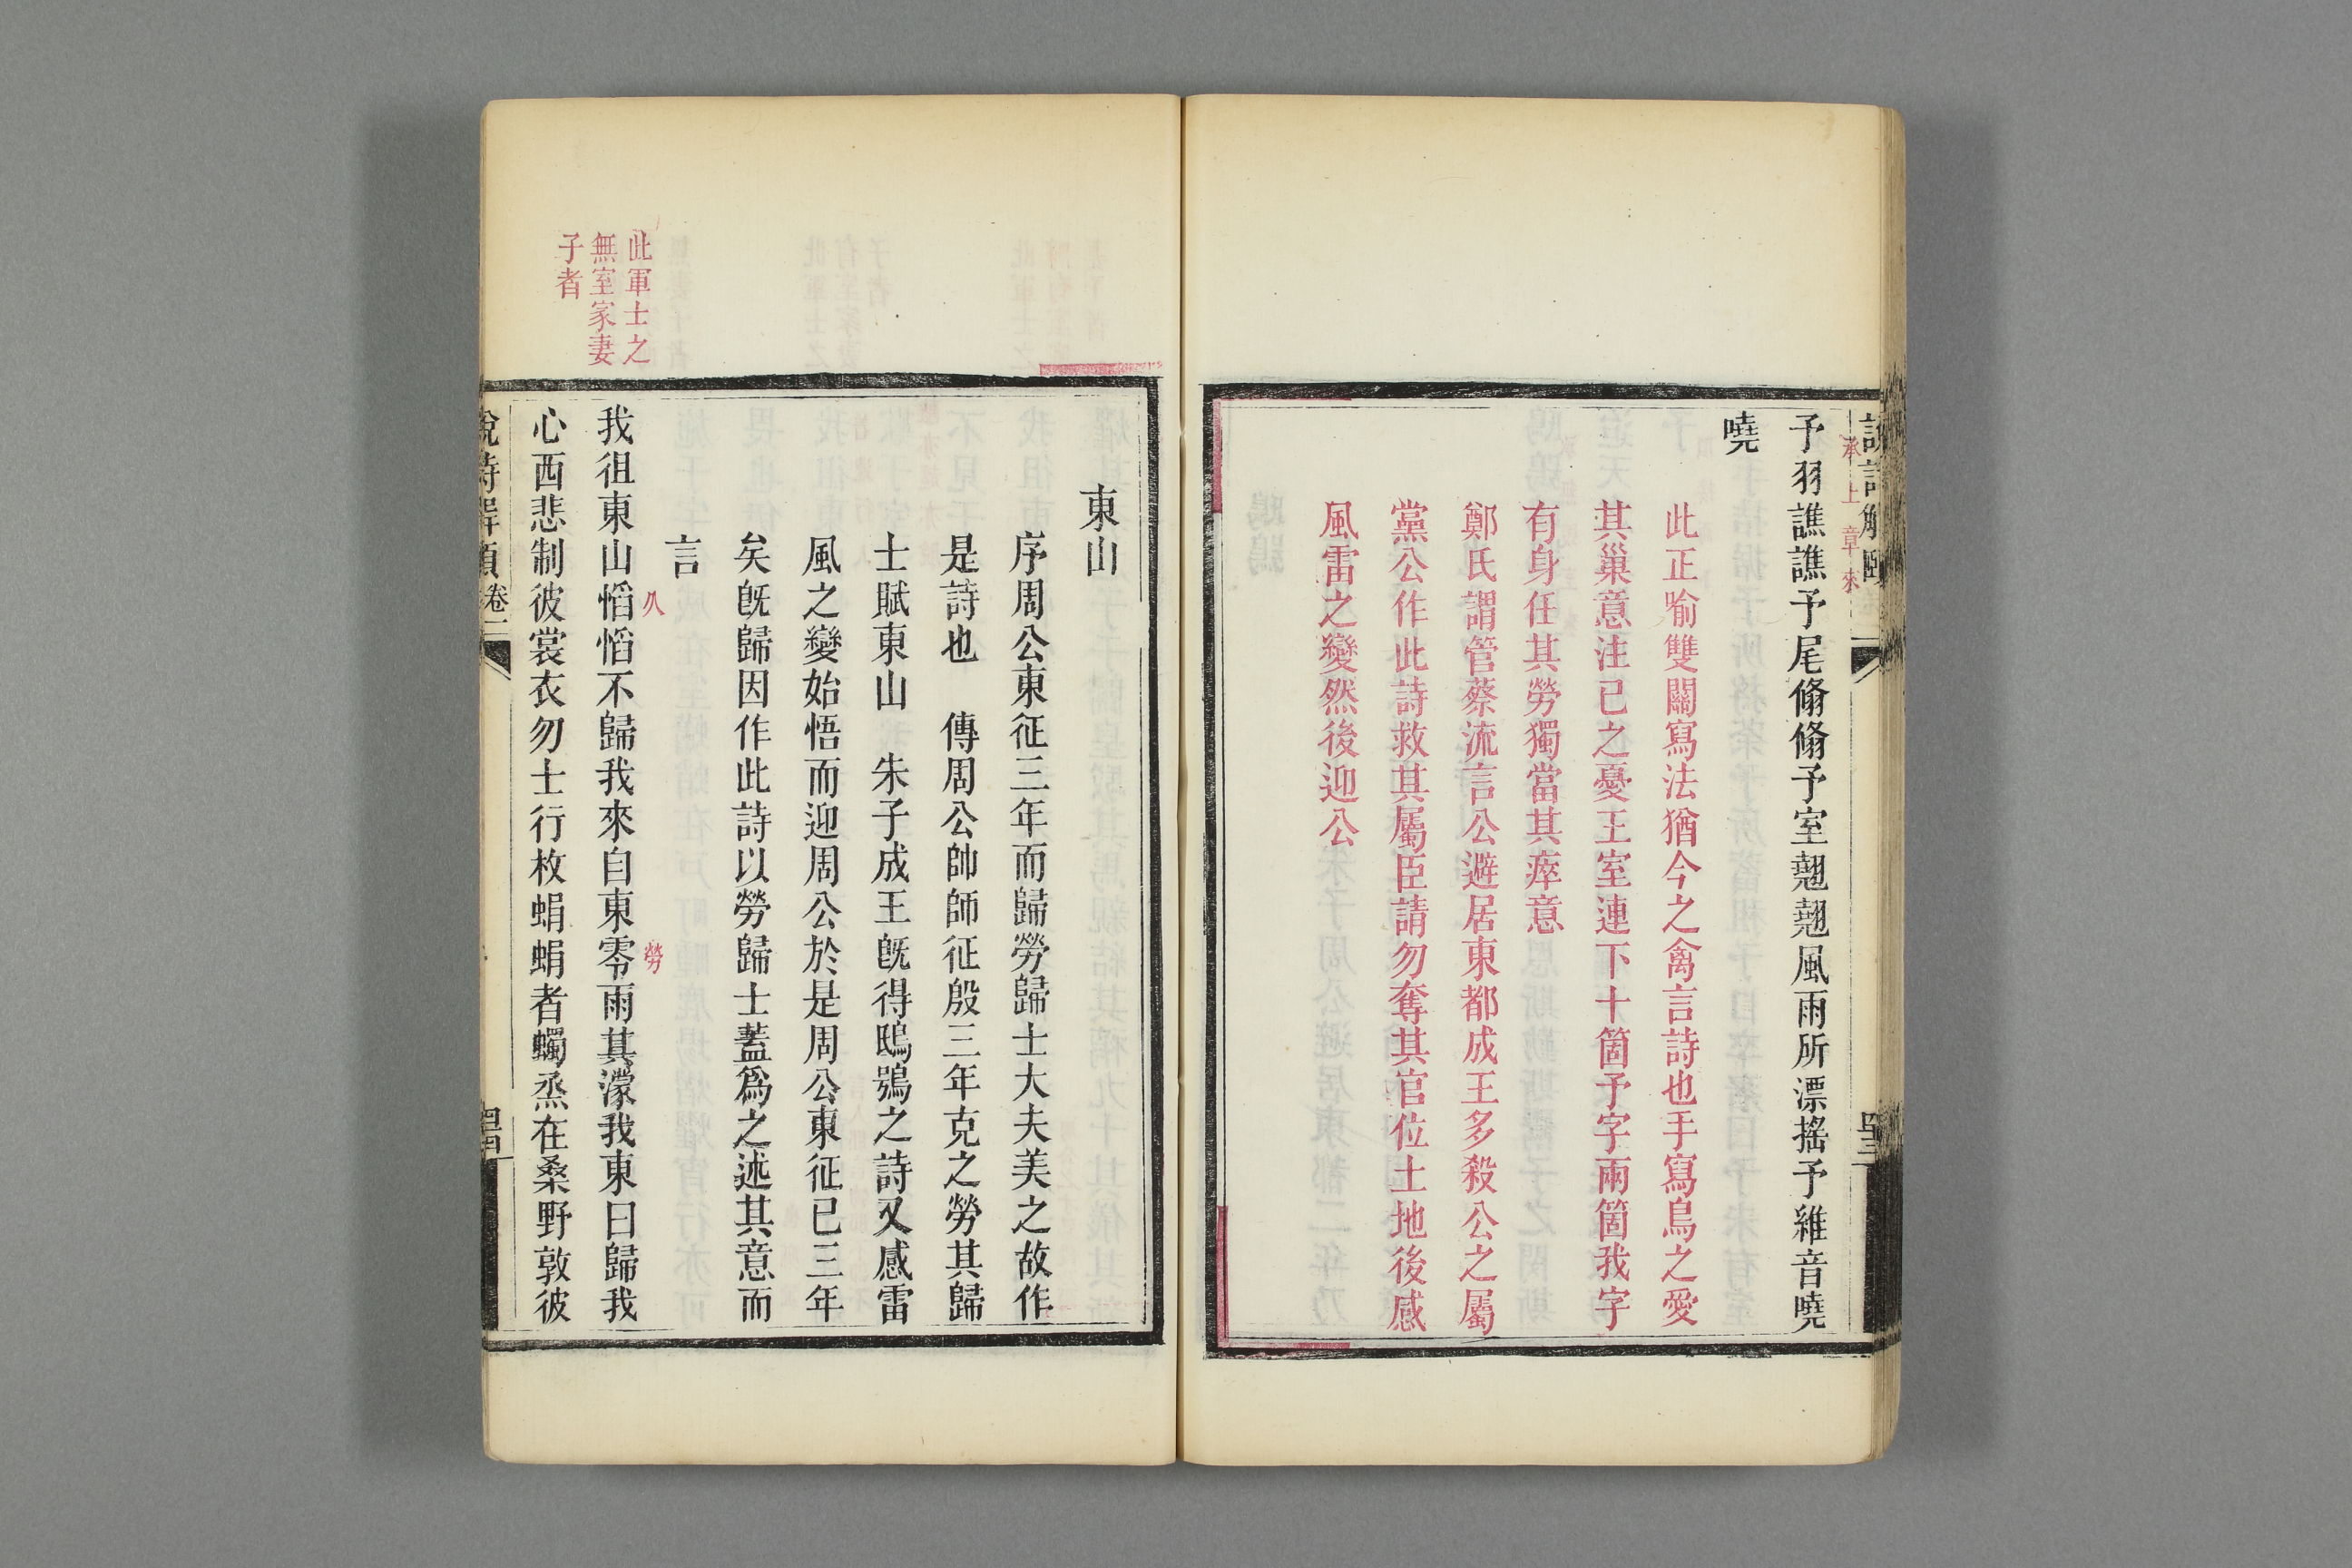 承上章來
予羽譙譙予尾翛翛予室翹翹風雨所漂搖予維音嘵
嘵
此正喻雙關寫法猶今之禽言詩也手寫鳥之愛
其巢意注已之憂王室連下十箇予字兩箇我字
有身任其勞獨當其瘁意
鄭氏謂管蔡流言公避居東都成王多殺公之屬
黨公作此詩救其屬臣請勿奪其官位土地後感
風雷之變然後迎公
東山
序周公東征三年而歸勞歸士大夫美之故作
是詩也　傳周公帥師征殷三年克之勞其歸
士賦東山　朱子成王既得鴟鴞之詩又感雷
風之變始悟而迎周公於是周公東征已三年
矣既歸因作此詩以勞歸士蓋爲之述其意而
言
此軍士之
無室家妻
子者
久
勞
我徂東山慆慆不歸我來自東零雨其濛我東曰歸我
心西悲制彼裳衣勿士行枚蜎蜎者蠋烝在桑野敦彼
說詩解頤
卷二